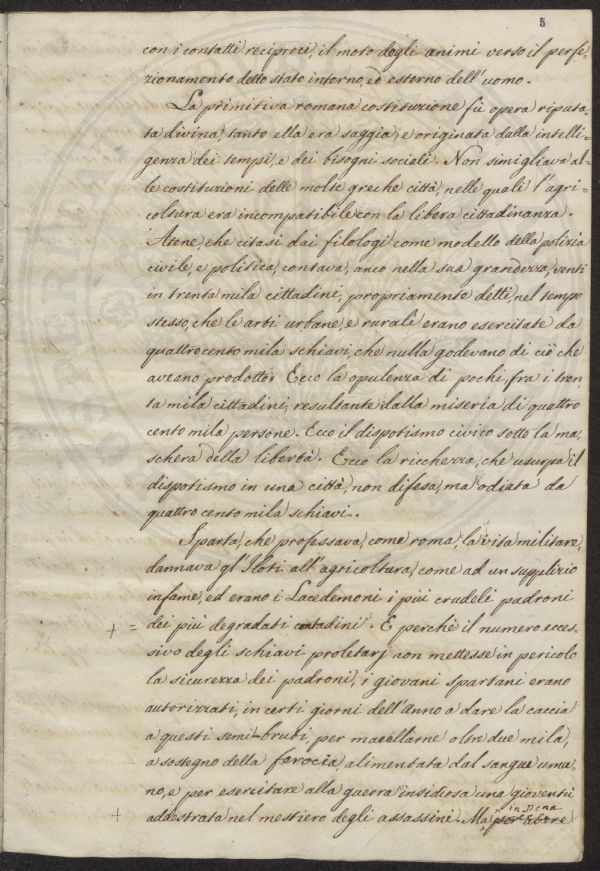 5
con i contatti reciproci, il moto degli animi verso il perfe-
zionamento dello stato interno, ed esterno dell'uomo.
La primitiva romana costituzione fù opera riputa-
ta divina, tanto ella era saggia, e originata dalla intelli-
genza dei tempi, e dei bisogni sociali. Non simigliava al-
le costituzioni delle molte greche città, nelle quali l'agri-
coltura era incompatibile con la libera cittadinanza.
Atene che citasi dai filologi come modello della polizia
civile, e politica, contava, anco nella sua grandezza, venti
in trenta mila cittadini, propriamente detti, nel tempo
stesso, che le arti urbane, e rurali erano esercitate da
quattrocento mila schiavi, che nulla godevano di ciò che
aveano prodotto. Ecco la opulenza di pochi, fra i tren-
ta mila cittadini, resultante dalla miseria di quattro
cento mila persone. Ecco il dispotismo civico sotto la ma-
schera della libertà. Ecco la ricchezza, che usurpa il
dispotismo in una città, non difesa, ma odiata da
quattro cento mila schiavi.
Sparta, che professava, come roma, la vita militare,
dannava gl'Iloti all'agricoltura, come ad un supplizio
infame, ed erano i Lacedemoni i più crudeli padroni
+ = dei più degradati contadini. E perchè il numero ecces-
sivo degli schiavi proletarj non mettesse in pericolo
la sicurezza dei padroni, i giovani spartani erano
autorizzati, in certi giorni dell'Anno a dare la caccia
a questi semi-bruti, per macellarne oltre due mila,
a sostegno della ferocia, alimentata dal sangue uma-
no, e per esercitare alla guerra insidiosa una gioventù
in pena
+ addestrata nel mestiero degli assassini. Ma per avere